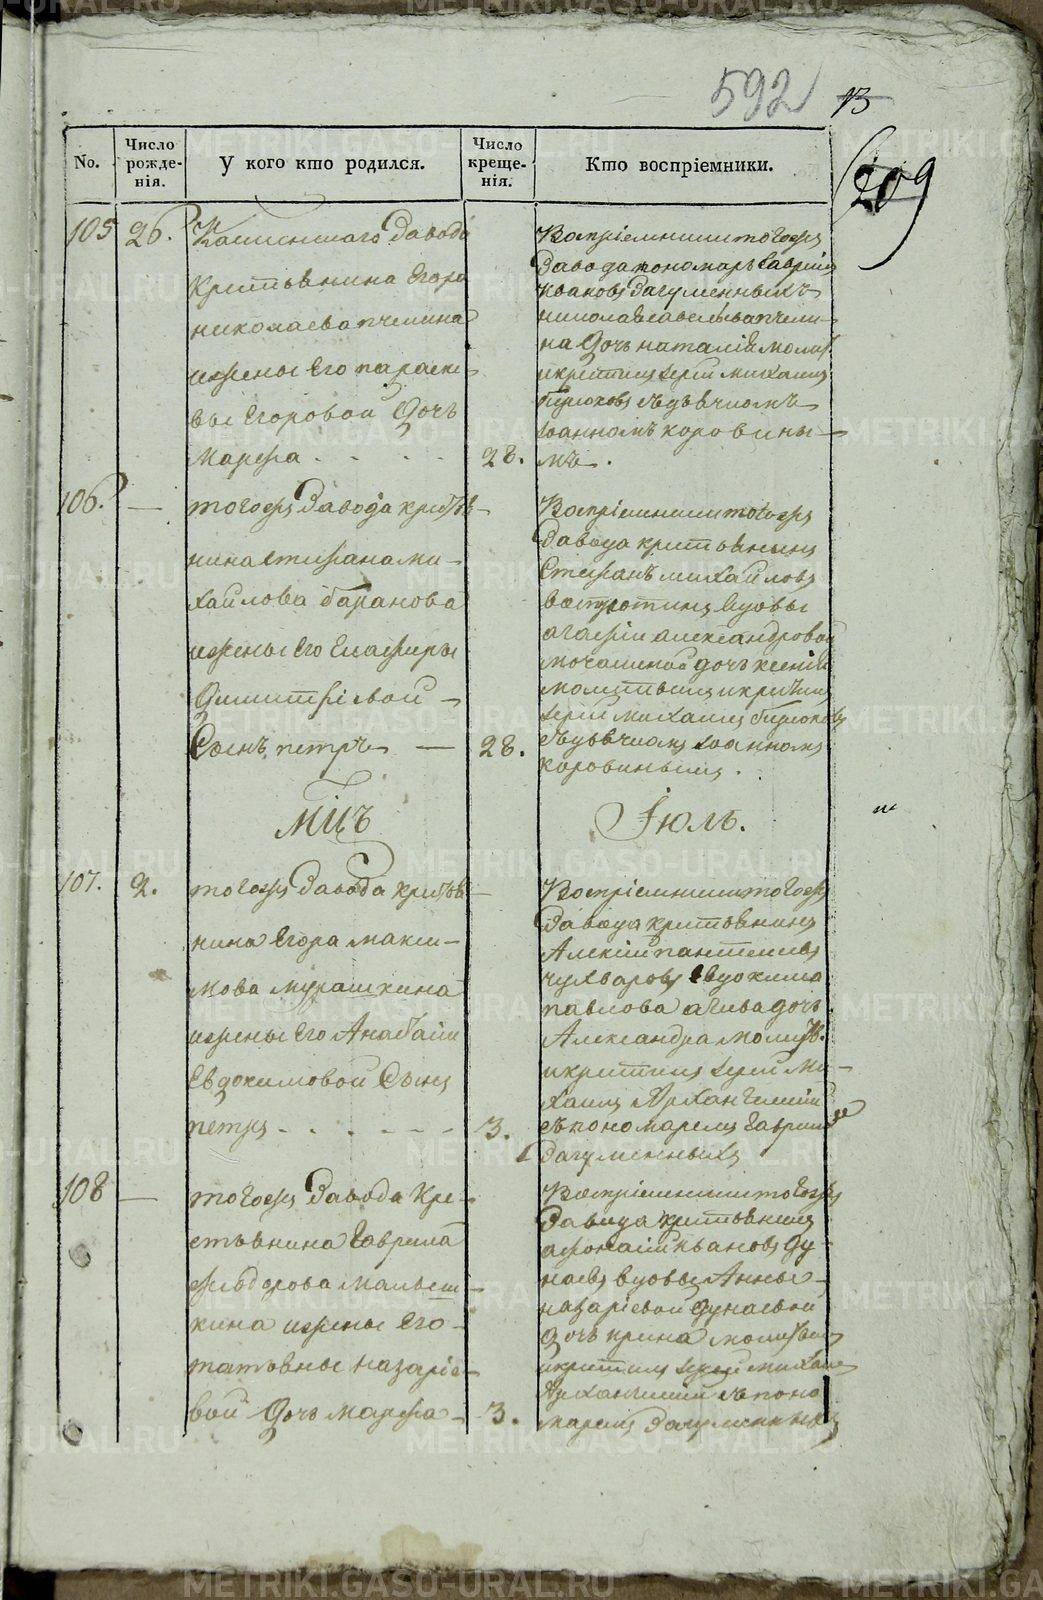 592
13
209
No.
Число рожде-нія.
У кого кто родился.
Число креще-нія.
Кто воспріемники.
105 26.
завода
крестьянина Егора
николаева пчелина
ижены Его параске-
вы Егоровой Дочь
Марфа . . . . 28.
Воспріемники тогожъ
завода пономарь Гаврилъ
Ивановъ загуменныхъ
на Дочь наталія молит.
икрестилъ Іерей михаилъ
бирюковъ съдьячкомъ
Іоанномъ коровины-
мъ.
106. —
тогожъ Завода крестья-
нина стефана ми-
хайлова баранова
ижены Его Глафиры
Димитріевой —
Сынъ петръ — 28.
Воспріемники тогожъ
завода крестьянинъ
Стефанъ михайловъ
вдовы
агафіи александровой
дочь ксенія
молитвилъ икрестилъ
Іерей михаилъ бирюковъ
съдьячкомъ Іоанномъ
коровинымъ.
мцъ Іюль.
107. 2.
тогожъ Завода крестья-
нина Егора макси-
мова мурашкина
ижены Его
Евдокимовой Сынъ
петръ - . . . - - 3.
Воспріемники тогожъ
Завода крестьянинъ
Алексій пантелеевъ
Евдокима
павлова дочь
Александра молитв.
икрестилъ Іерей ми-
хаилъ Архангелскій
съпономаремъ Гаврилой
Загуменныхъ
108 —
тогожъ Завода кре-
стьянина Гаврила
ѳедорова
кина ижены Его
татьяны назаріе-
вой Дочь марфа - 3.
Воспріемники тогожъ
Завода крестьянинъ
афонасій Ивановъ Ду
наевъ вдовы Анны
назаріевой дунаевой
дочь ирина молитвилъ
икрестилъ Іерей михаилъ
Архангелскій съпоно
маремъ Загуменныхъ
METRIKI.GASO-URAL.RU